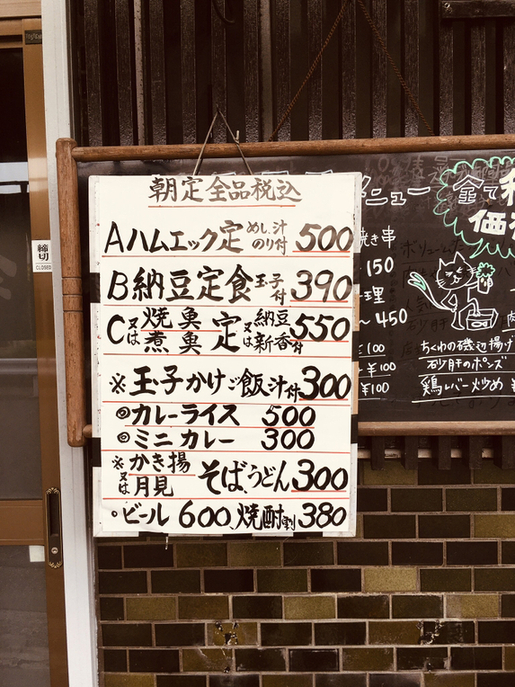 朝定全品税込
Aハムエック定 めし、汁 のり付 500
B納豆定食 玉子付 390
C 焼魚 又は 煮魚 定 又は 納豆 新香付 550
※玉子かけご飯汁付 300
◎カレーライス 500
◎ミニカレー 300
※かき揚 又は 月見 そば、うどん 300
◦ビール 600、焼酎割 380
締切
CLOSED
ニュー
全て
価
焼き串
150
理
～450
¥100
¥100
¥100
ちくわの磯辺揚げ
砂肝のポンズ
鶏レバー炒め